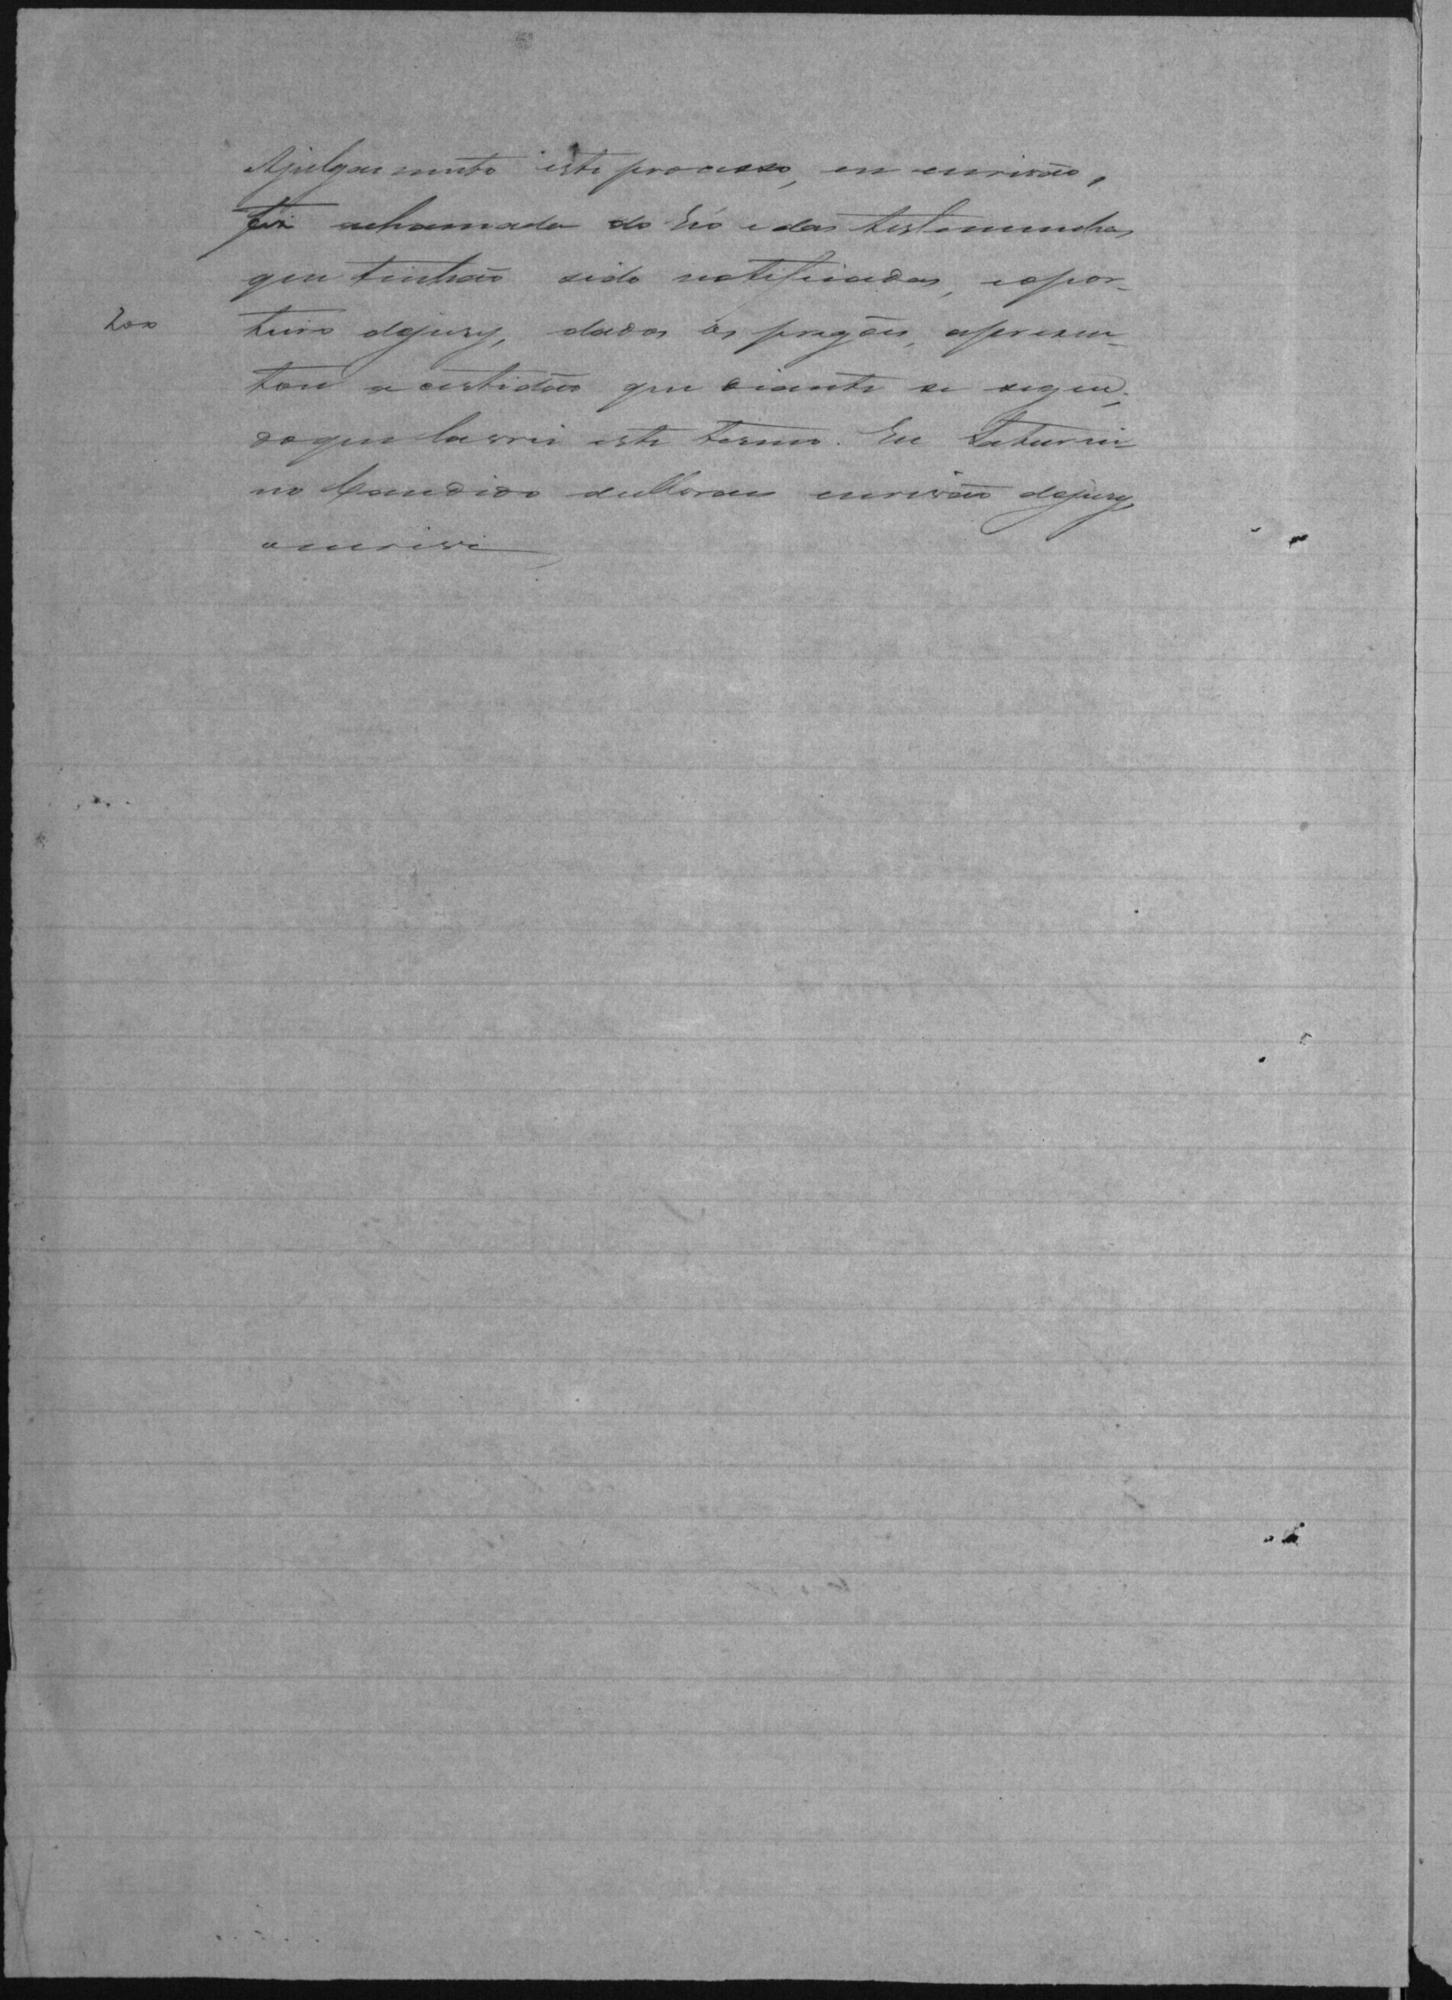 Ajulgamento este processo, eu escrivão,
fiz achamada do Réo e das testemunhas
que tinhão sido notificadas, eopor-
200
teiro dojury, dados os pregões, apresen-
tou a certidão que diante se segue;
doque lavrei este termo. Eu Saturni-
no Candido de Moraes escrivão dojury,
o escrivi